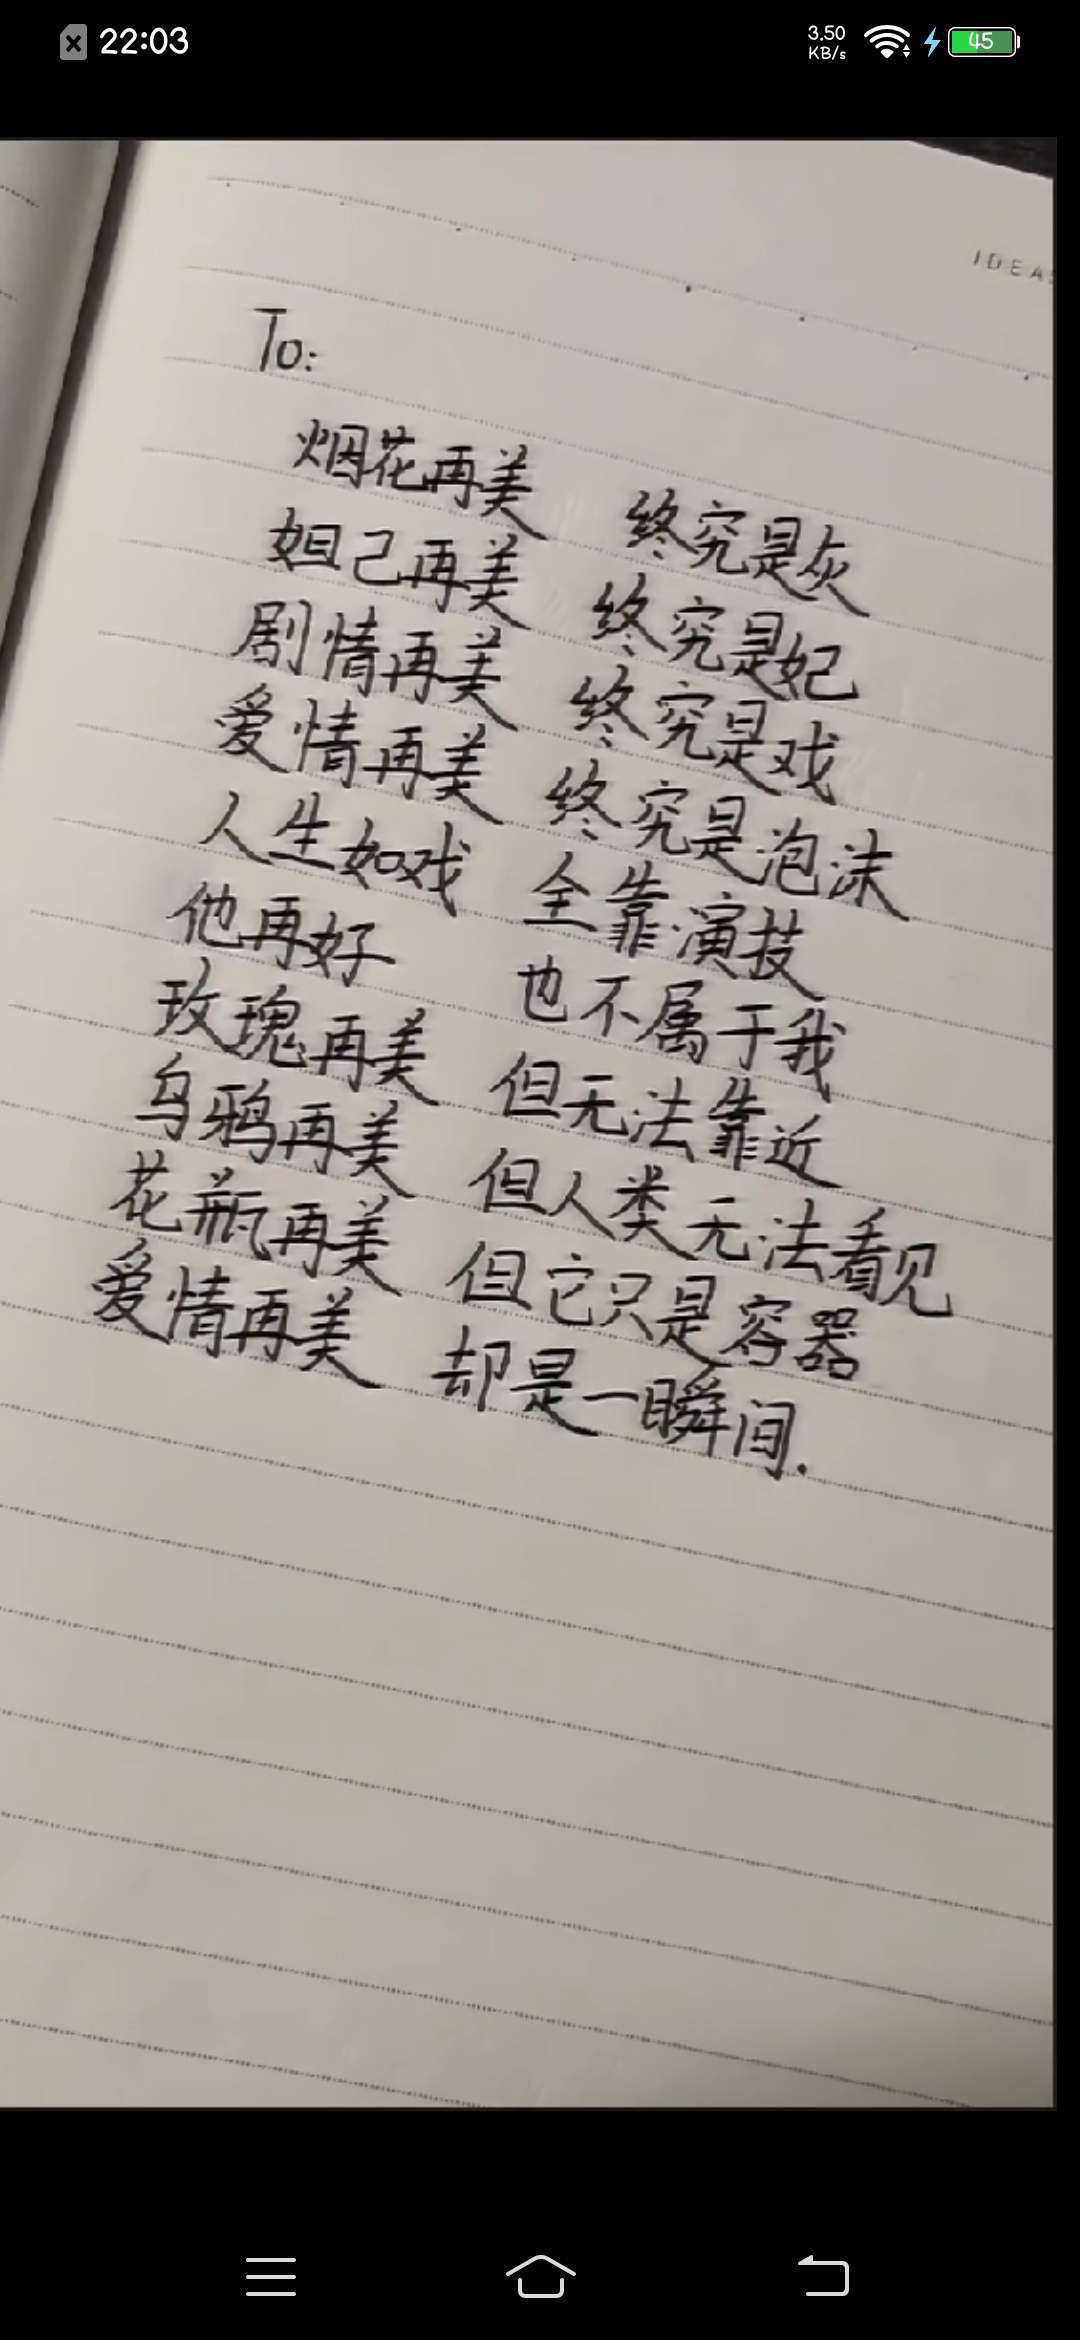 22:03 3.50 KB/s 45
IDEAS
To:
烟花再美 终究是灰
妲己再美 终究是妃
剧情再美 终究是戏
爱情再美 终究是泡沫
人生如戏 全靠演技
他再好 也不属于我
玫瑰再美 但无法靠近
乌鸦再美 但人类无法看见
花瓶再美 但它只是容器
爱情再美 却是一瞬间.